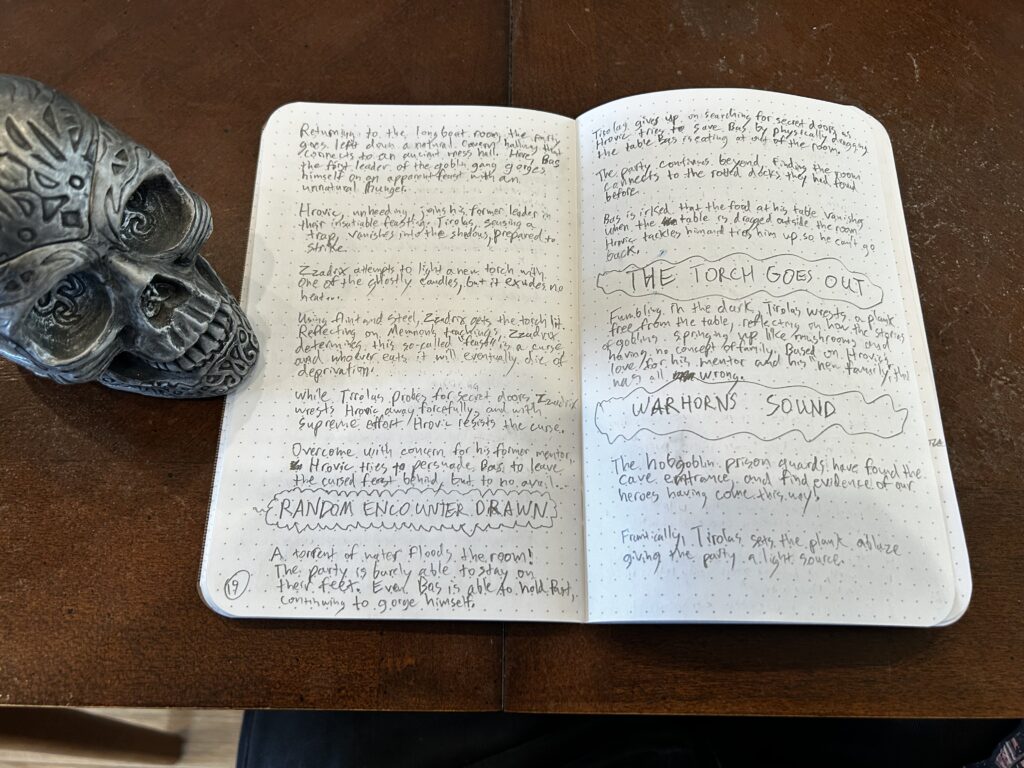 Returning to the longboat room, the party
goes left down a natural cavern hallway that
connects to an ancient mess hall. Here, Bas
the first leader of the goblin gang gorges
himself on an apparent feast with an
unnatural hunger.
Hrovic, unheeding, joins his former leader in
their insatiable feasting. Tirolas, sensing a
trap, vanishes into the shadows, prepared to
strike.
Zzadrix attempts to light a new torch with
one of the ghostly candles, but it exudes no
heat...
Using flint and steel, Zzadrix gets the torch lit.
Reflecting on Memnon's teachings, Zzadrix
determines this so-called "feast" is a curse
and whoever eats it will eventually die of
deprivation.
While Tirolas probes for secret doors, Zzadrix
wrests Hrovic away forcefully, and with
supreme effort, Hrovic resists the curse.
Overcome with concern for his former mentor,
Hrovic tries to persuade Bas to leave
the cursed feast behind, but to no avail...
RANDOM ENCOUNTER DRAWN
A torrent of water floods the room!
The party is barely able to stay on
their feet. Even Bas is able to hold fast,
continuing to gorge himself.
19
Tirolas gives up on searching for secret doors as
Hrovic tries to save Bas by physically dragging
the table Bas is eating at out of the room.
The party continues beyond, finding the room
connects to the rotted decks they had found
before.
Bas is irked that the food at his table vanishes
when the table is dragged outside the room.
Hrovic tackles him and ties him up so he can't go
back.
THE TORCH GOES OUT
Fumbling in the dark, Tirolas wrests a plank
free from the table, reflecting on how the stories
of goblins springing up like mushrooms and
having no concept of family. Based on Hrovic's
love for his mentor and his new family, that
was all wrong.
WARHORNS SOUND
The hobgoblin prison guards have found the
cave entrance, and find evidence of our
heroes having come this way!
Frantically, Tirolas sets the plank ablaze
giving the party a light source.